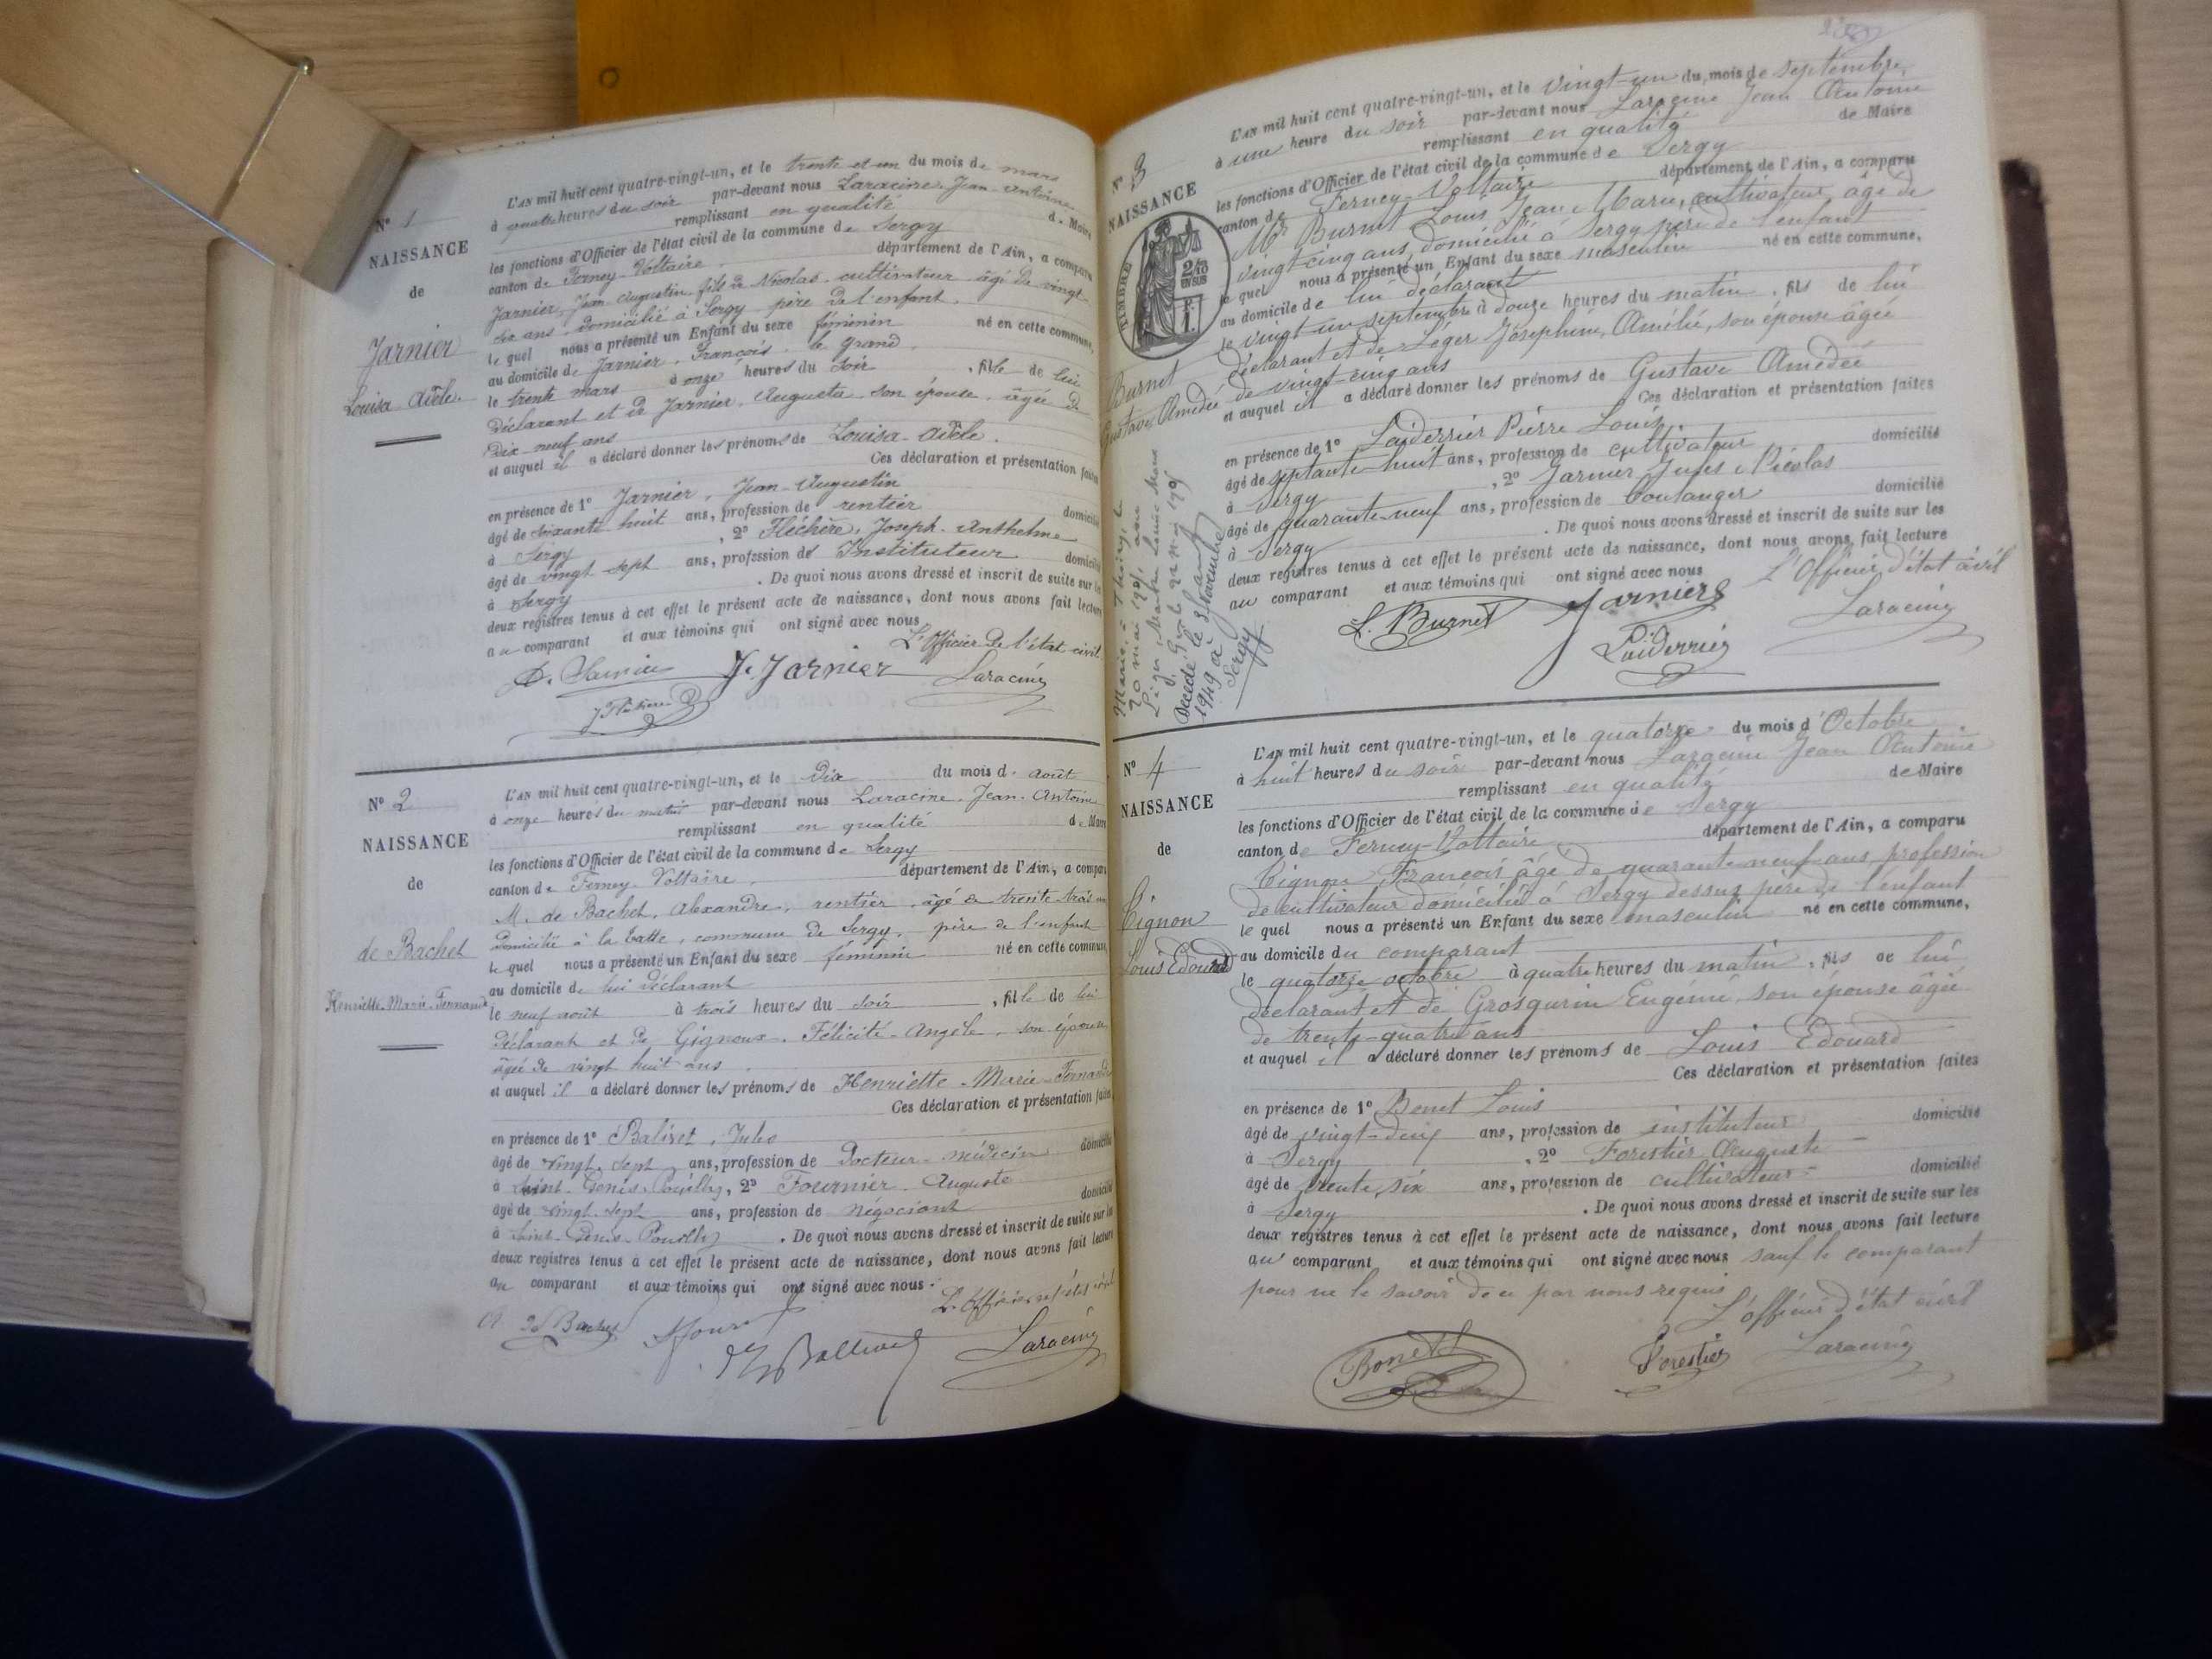 N° 1
NAISSANCE
de
Jarnier
Louisa Adèle.
L'AN mil huit cent quatre-vingt-un, et le trente et un du mois de mars
à quatre heures du soir par-devant nous Laracine, Jean-Antoine
remplissant en qualité de Maire
les fonctions d'Officier de l'état civil de la commune de Sergy
canton de Ferney-Voltaire département de l'Ain, a comparu
Jarnier, Jean-Augustin, fils de Nicolas, cultivateur âgé de vingt
six ans, domicilié à Sergy père de l'enfant,
le quel nous a présenté un Enfant du sexe féminin né en cette commune,
au domicile de Jarnier, François, le grand,
le trente mars à onze heures du soir, fille de lui
déclarant et de Jarnier, Augusta, son épouse, âgée de
dix-neuf ans
et auquel il a déclaré donner les prénoms de Louisa-Adèle.
Ces déclaration et présentation faites
en présence de 1° Jarnier, Jean-Augustin
âgé de soixante huit ans, profession de rentier domicilié
à Sergy, 2° Fléchère, Joseph-Anthelme
âgé de vingt sept ans, profession de Instituteur domicilié
à Sergy. De quoi nous avons dressé et inscrit de suite sur les
deux registres tenus à cet effet le présent acte de naissance, dont nous avons fait lecture
au comparant et aux témoins qui ont signé avec nous
L'Officier de l'état civil
J. Jarnier Laracine
N° 2
NAISSANCE
de
de Bachet
Henriette-Marie-Fernande
L'AN mil huit cent quatre-vingt-un, et le dix du mois d'août
à onze heures du matin par-devant nous Laracine, Jean-Antoine
remplissant en qualité de Maire
les fonctions d'Officier de l'état civil de la commune de Sergy
canton de Ferney-Voltaire département de l'Ain, a comparu
M. de Bachet, Alexandre, rentier, âgé de trente-trois ans
domicilié à la Batte, commune de Sergy, père de l'enfant
le quel nous a présenté un Enfant du sexe féminin né en cette commune,
au domicile de lui déclarant
le neuf août à trois heures du soir, fille de lui
déclarant et de Gignoux, Félicité-Angèle, son épouse
âgée de vingt huit ans
et auquel il a déclaré donner les prénoms de Henriette-Marie-Fernande
Ces déclaration et présentation faites
en présence de 1° Balivet, Jules
âgé de vingt-sept ans, profession de Docteur-médecin domicilié
à Saint-Genis-Pouilly, 2° Fournier, Auguste
âgé de vingt-sept ans, profession de négociant domicilié
à Saint-Genis-Pouilly. De quoi nous avons dressé et inscrit de suite sur les
deux registres tenus à cet effet le présent acte de naissance, dont nous avons fait lecture
au comparant et aux témoins qui ont signé avec nous.
L'Officier de l'état civil
de Bachet Laracine
N° 3
NAISSANCE
TIMBRE
2/10 EN SUS
Burnet
Gustave Amédée
L'AN mil huit cent quatre-vingt-un, et le vingt-un du mois de septembre,
à une heure du soir par-devant nous Laracine Jean Antoine
remplissant en qualité de Maire
les fonctions d'Officier de l'état civil de la commune de Sergy
canton de Ferney-Voltaire département de l'Ain, a comparu
Mr Burnet Louis Jean Marie, cultivateur âgé de
vingt-cinq ans, domicilié à Sergy père de l'enfant
le quel nous a présenté un Enfant du sexe masculin né en cette commune,
au domicile de lui déclarant
le vingt-un septembre à douze heures du matin, fils de lui
déclarant et de Léger Joséphine, Amélie, son épouse âgée
de vingt-cinq ans
et auquel il a déclaré donner les prénoms de Gustave Amédée
Ces déclaration et présentation faites
en présence de 1° Laiderrier Pierre Louis
âgé de septante-huit ans, profession de cultivateur domicilié
à Sergy, 2° Jarnier Jules Nicolas
âgé de quarante-neuf ans, profession de boulanger domicilié
à Sergy. De quoi nous avons dressé et inscrit de suite sur les
deux registres tenus à cet effet le présent acte de naissance, dont nous avons fait lecture
au comparant et aux témoins qui ont signé avec nous
L'Officier d'état civil
L. Burnet Jarnier Laracine
Laiderrier
Décédé le 3 Novembre
1949 à
Sergy
N° 4
NAISSANCE
de
Pignon
Louis Edouard
L'AN mil huit cent quatre-vingt-un, et le quatorze du mois d'Octobre
à huit heures du soir par-devant nous Laracine Jean Antoine
remplissant en qualité de Maire
les fonctions d'Officier de l'état civil de la commune de Sergy
canton de Ferney-Voltaire département de l'Ain, a comparu
Pignon François âgé de quarante-neuf ans, profession
de cultivateur domicilié à Sergy dessus père de l'enfant
le quel nous a présenté un Enfant du sexe masculin né en cette commune,
au domicile du comparant
le quatorze octobre à quatre heures du matin, fils de lui
déclarant et de Grosgurin Eugénie, son épouse âgée
de trente-quatre ans
et auquel il a déclaré donner les prénoms de Louis Edouard
Ces déclaration et présentation faites
en présence de 1° Bonet Louis
âgé de vingt-deux ans, profession de instituteur domicilié
à Sergy, 2° Forestier Auguste
âgé de trente six ans, profession de cultivateur domicilié
à Sergy. De quoi nous avons dressé et inscrit de suite sur les
deux registres tenus à cet effet le présent acte de naissance, dont nous avons fait lecture
au comparant et aux témoins qui ont signé avec nous sauf le comparant
pour ne le savoir de ce par nous requis
L'officier d'état civil
Bonet L Forestier Laracine